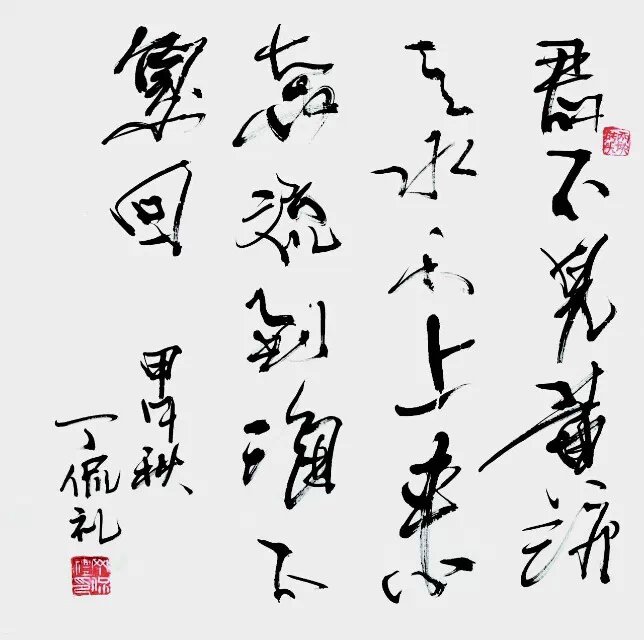 君不見黄河
之水天上来
奔流到海不
復回
甲午秋
丁侃礼